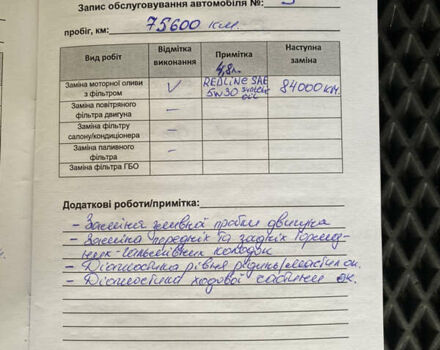 Запис обслуговування автомобіля №: 5
пробіг, км: 75600 км.
Вид робіт Відмітка виконання Примітка Наступна заміна
4,8л.
Заміна моторної оливи з фільтром V REDLINE SAE 5W30 84000 км.
Заміна повітряного фільтра двигуна –
Заміна фільтру салону/кондиціонера –
Заміна паливного фільтра –
Заміна фільтра ГБО
Додаткові роботи/примітка:
- Заміна зливної пробки двигуна
- Заміна передніх та задніх гальмівних колодок
- Діагностика рівня рідин/мастил ок.
- Діагностика ходової частини ок.